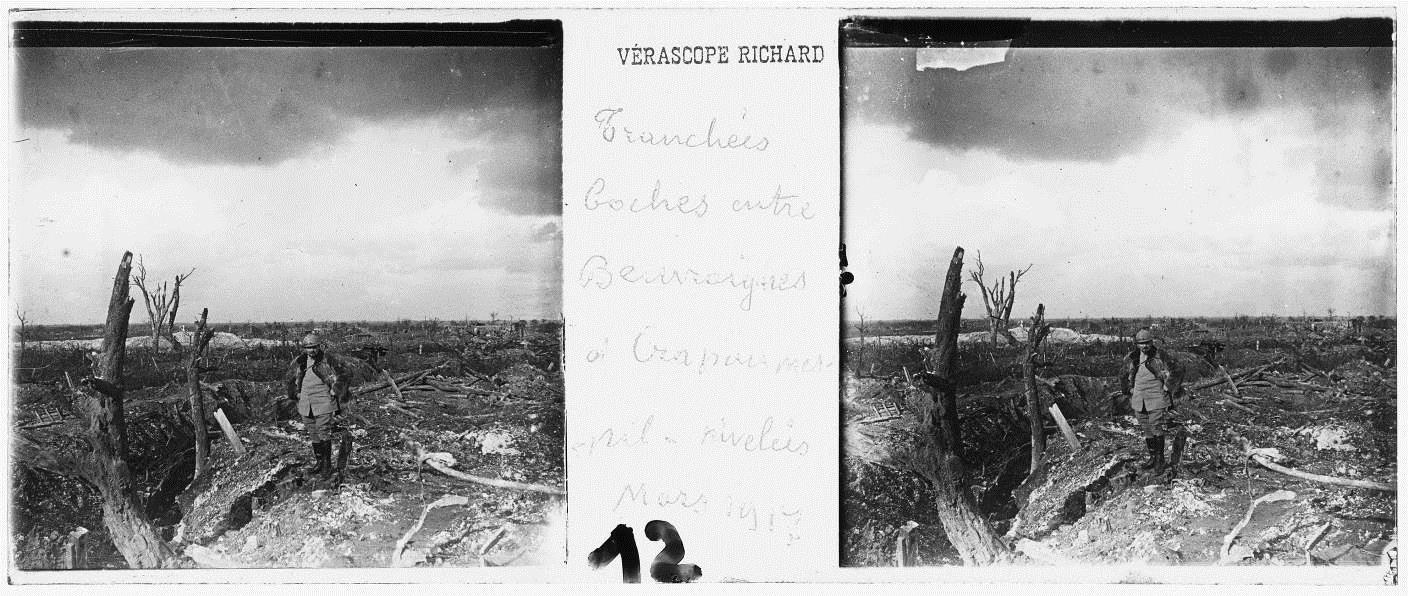 VÉRASCOPE RICHARD
Tranchées
Boches entre
Beuvraignes
à Crapeaumes-
nivelées
Mars 1917
12